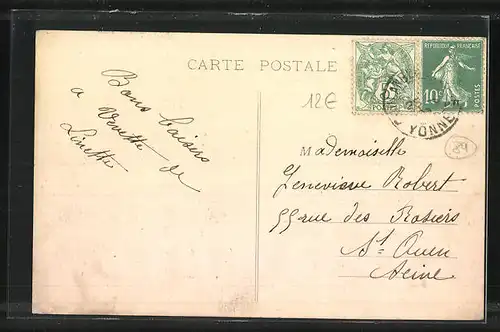 CARTE POSTALE
12€
REPUBLIQUE FRANÇAISE
10c
POSTES
5
YONNE
Bons baisers
a Venette de
Linette
Mademoiselle
Genevieve Robert
55 rue des Rosiers
St Ouen
Seine